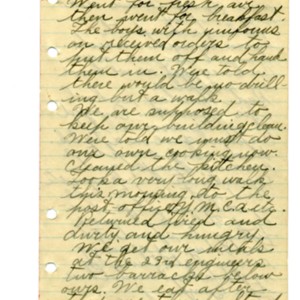 Went for
then went for breakfast.
The boys with uniforms
on received orders to
put them off and hand
them in. Were told
there would be no drill-
ing but a walk
We are supposed to
keep our building clean.
Were told we must do
our own cooking now.
the kitchen.
Took a
this morning, to the
post office, Y.M.C.A. etc.
Returned tired and
dirty and hungry
We get our meals
at the 23rd engineers
two barracks below
ours. We eat after